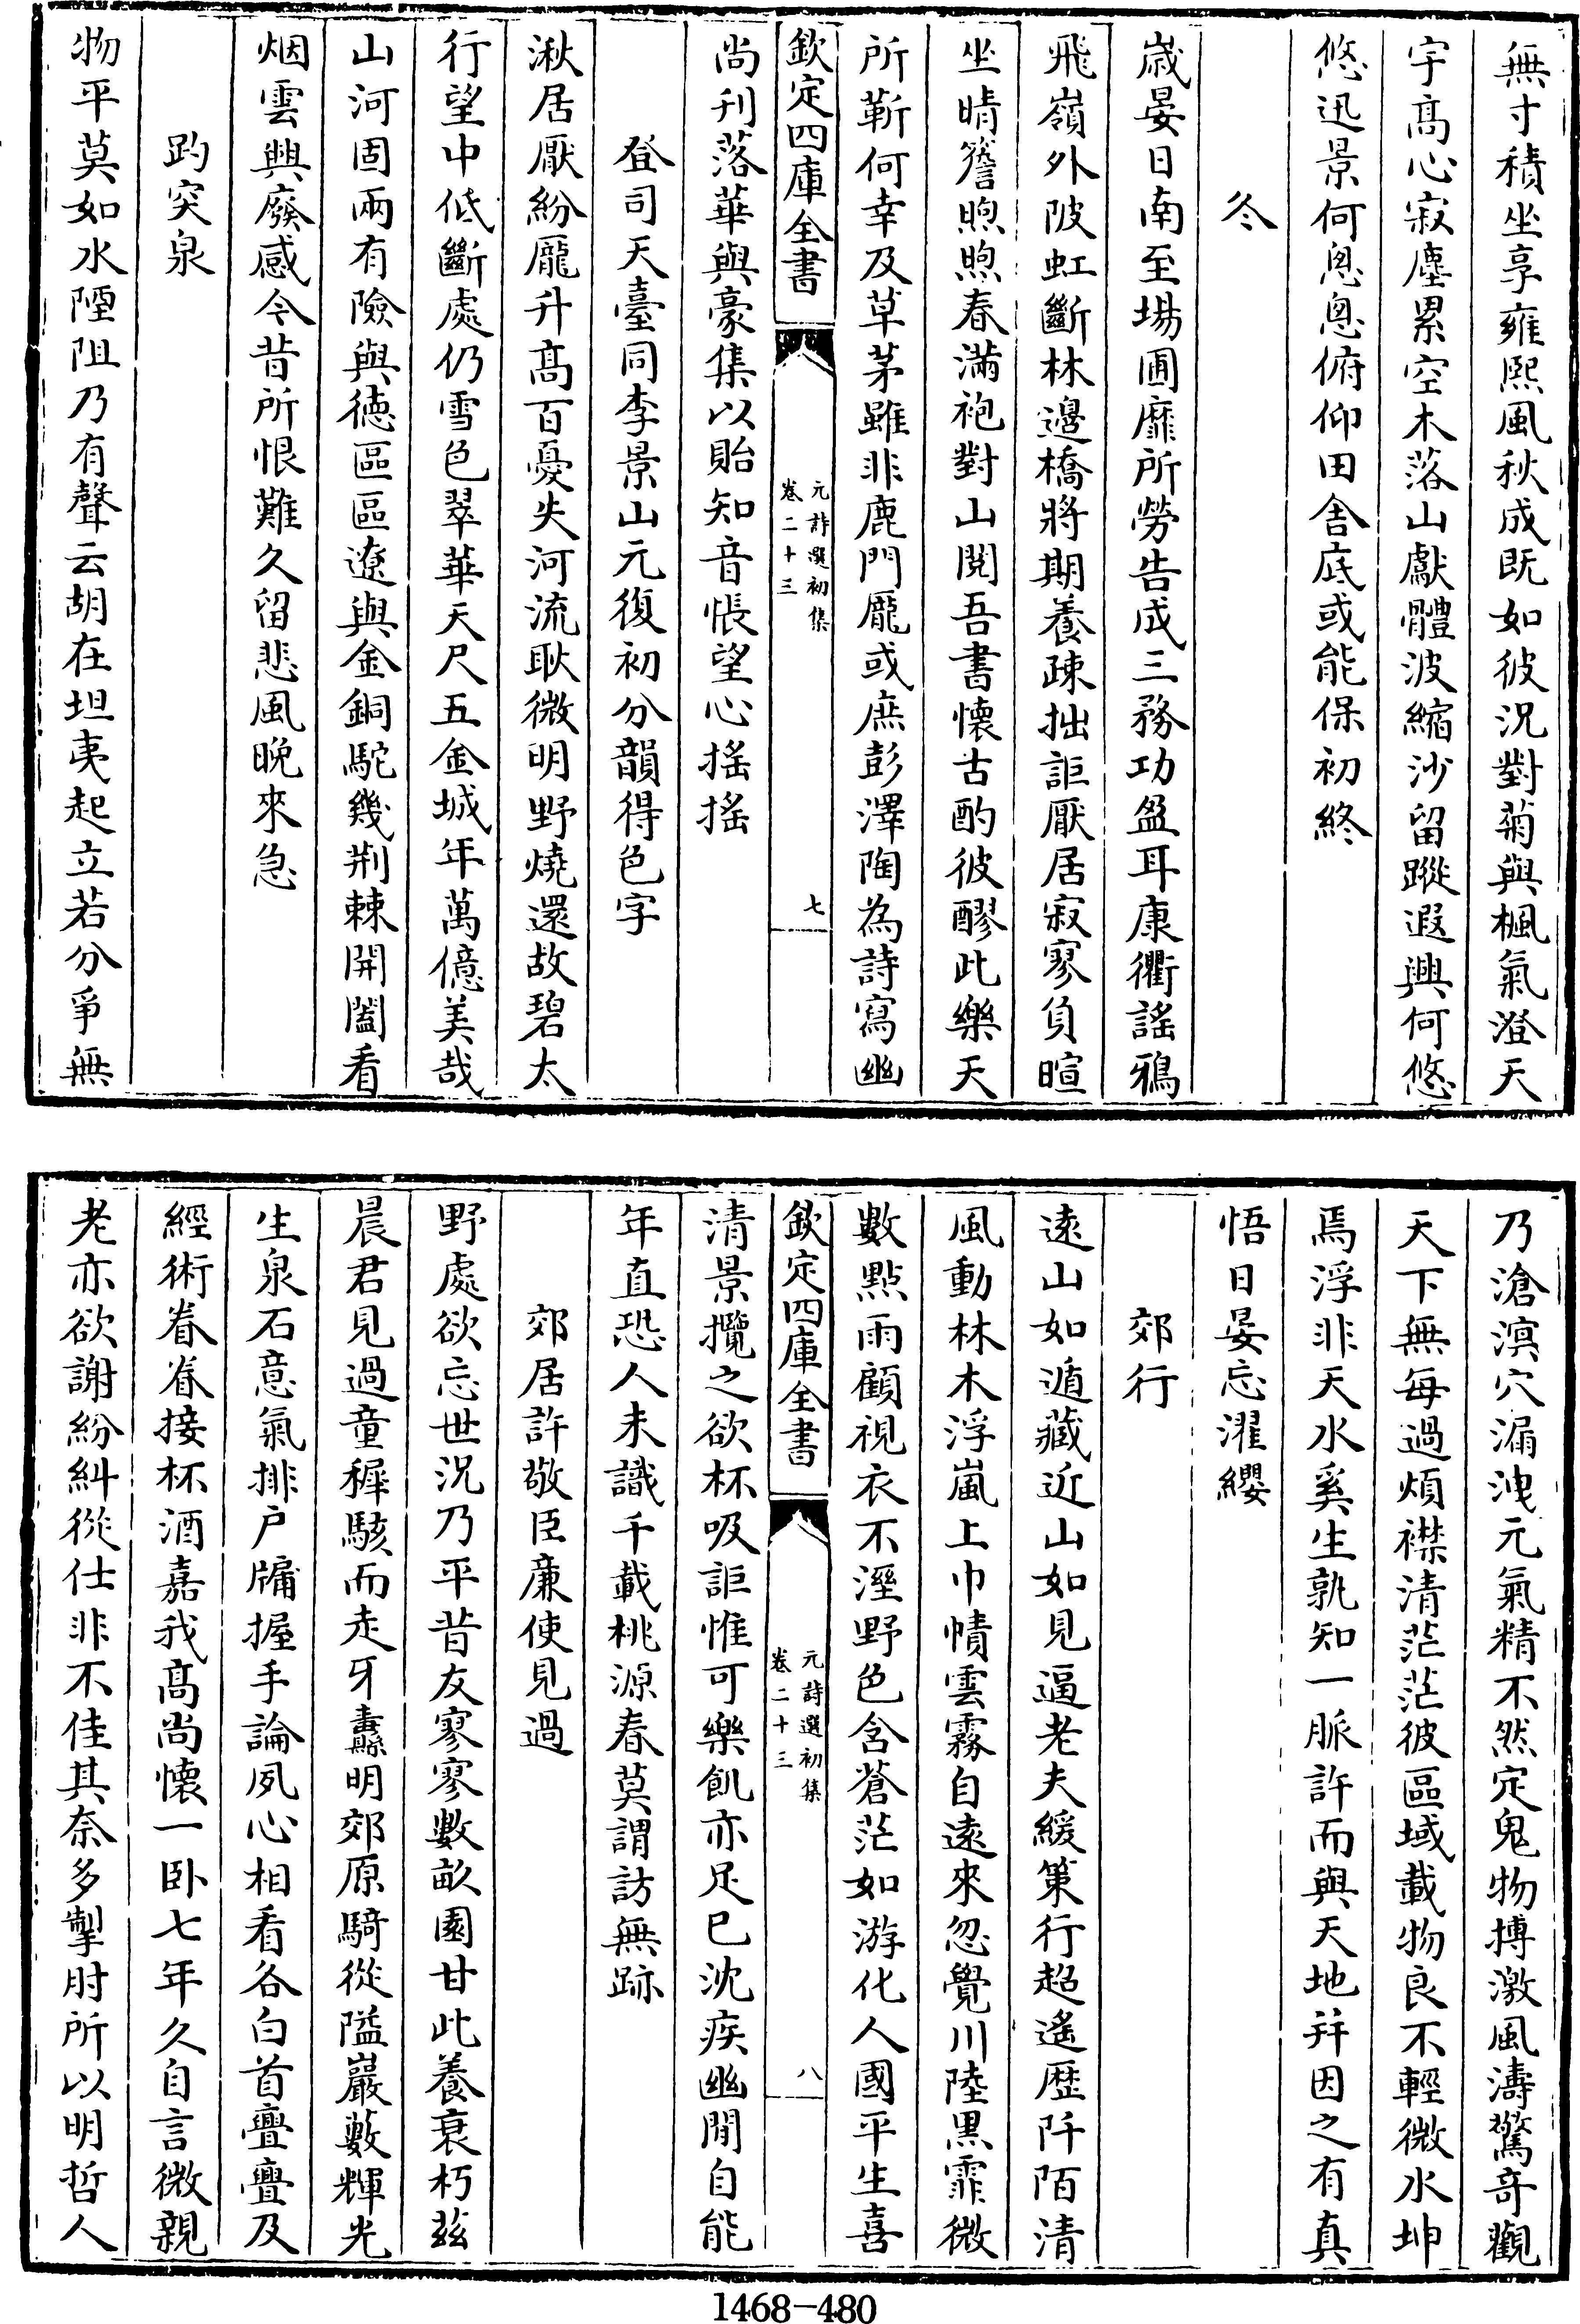 無寸積坐享雍熙風秋成既如彼况對菊與楓氣澄天
宇髙心寂塵累空木落山獻體波縮沙留蹤遐興何悠
悠迅景何悤悤俯仰田舎底或能保初終
冬
歳晏日南至場圃靡所勞告成三務功盈耳康衢謡鴉
飛嶺外陂虹斷林邊橋將期養疎拙詎厭居寂寥負暄
坐晴簷煦煦春滿袍對山閲吾書懐古酌彼醪此樂天
所靳何幸及草茅雖非鹿門龎或庶彭澤陶為詩寫幽
欽定四庫全書
元詩選初集
卷二十三
七
尚刋落華與豪集以貽知音悵望心揺揺
登司天臺同李景山元復初分韻得色字
湫居厭紛厖升髙百憂失河流耿微明野燒還故碧太
行望中低斷處仍雪色翠華天尺五金城年萬億美哉
山河固兩有險與徳區區遼與金銅駝幾荆棘開闔看
烟雲興廢感今昔所恨難久留悲風晩來急
趵突泉
物平莫如水堙阻乃有聲云胡在坦夷起立若分爭無
乃滄溟穴漏洩元氣精不然定鬼物搏激風濤驚竒觀
天下無每過煩襟清茫茫彼區域載物良不輕微水坤
焉浮非天水奚生孰知一脈許而與天地并因之有真
悟日晏忘濯纓
郊行
逺山如遁藏近山如見逼老夫緩䇿行超遙歴阡陌清
風動林木浮嵐上巾幘雲霧自逺來忽覺川陸黒霏微
數點雨顧視衣不溼野色含蒼茫如游化人國平生喜
欽定四庫全書
元詩選初集
卷二十三
八
清景攬之欲杯吸詎惟可樂飢亦足已沈疾幽閒自能
年直恐人未識千載桃源春莫謂訪無跡
郊居許敬臣亷使見過
野處欲忘世况乃平昔友寥寥數畝園甘此養衰朽兹
晨君見過童穉駭而走牙纛明郊原騎從隘巖藪輝光
生泉石意氣排户牖握手論夙心相看各白首亹亹及
經術眷眷接杯酒嘉我髙尚懐一卧七年久自言微親
老亦欲謝紛糾從仕非不佳其奈多掣肘所以明哲人
1468-480